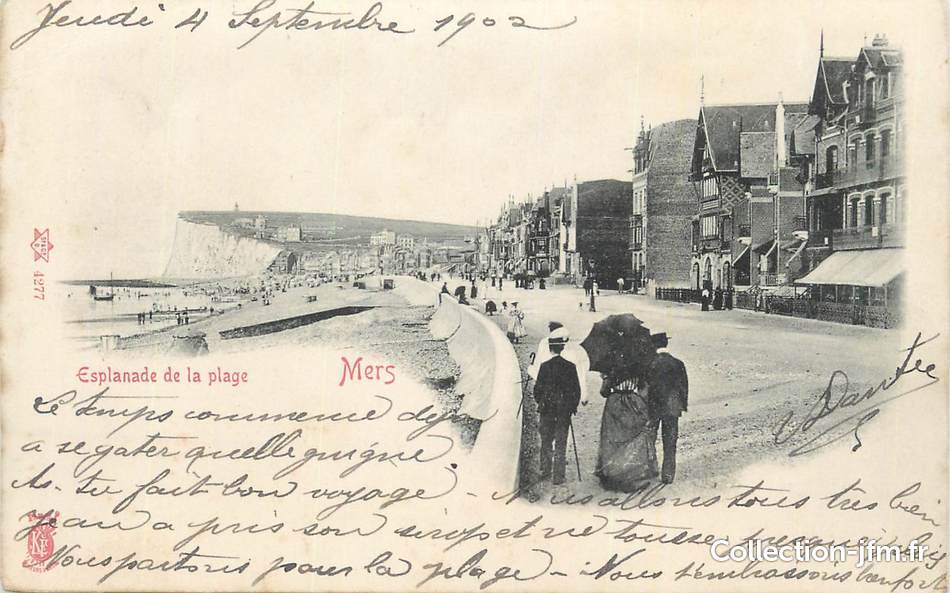 Jeudi 4 Septembre 1902
4277
Esplanade de la plage
Mers
Le temps commence deja
a se gater quelle guigne.
As-tu fait bon voyage - Nous allons tous très bien
Jean a pris son sirop et ne tousse presque
Nous partons pour la plage - Nous t'embrassons bien fort
Collection-jfm.fr